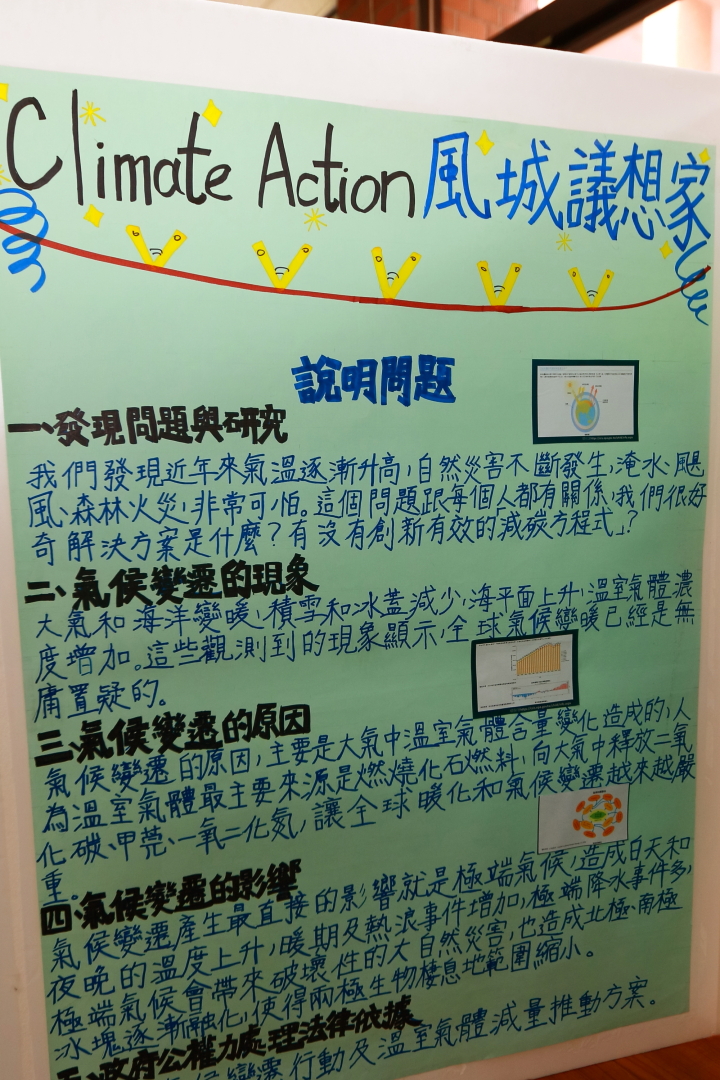 Climate Action 風城議想家
說明問題
一、發現問題與研究
我們發現近年來氣溫逐漸升高,自然災害不斷發生,淹水、颶
風、森林火災,非常可怕。這個問題跟每個人都有關係,我們很好
奇解決方案是什麼?有沒有創新有效的「減碳方程式」?
二、氣候變遷的現象
大氣和海洋變暖,積雪和冰蓋減少,海平面上升,溫室氣體濃
度增加。這些觀測到的現象顯示,全球氣候變暖已經是無
庸置疑的。
三、氣候變遷的原因
氣候變遷的原因,主要是大氣中溫室氣體含量變化造成的,人
為溫室氣體最主要來源是燃燒化石燃料,向大氣中釋放二氧
化碳、甲烷、一氧二化氮,讓全球暖化和氣候變遷越來越嚴
重。
四、氣候變遷的影響
氣候變遷產生最直接的影響就是極端氣候,造成白天和
夜晚的溫度上升,暖期及熱浪事件增加,極端降水事件多,
極端氣候會帶來破壞性的大自然災害,也造成北極、南極
冰塊逐漸融化,使得兩極生物棲息地範圍縮小。
五、政府公權力處理法律依據
候變遷行動及溫室氣體減量推動方案。